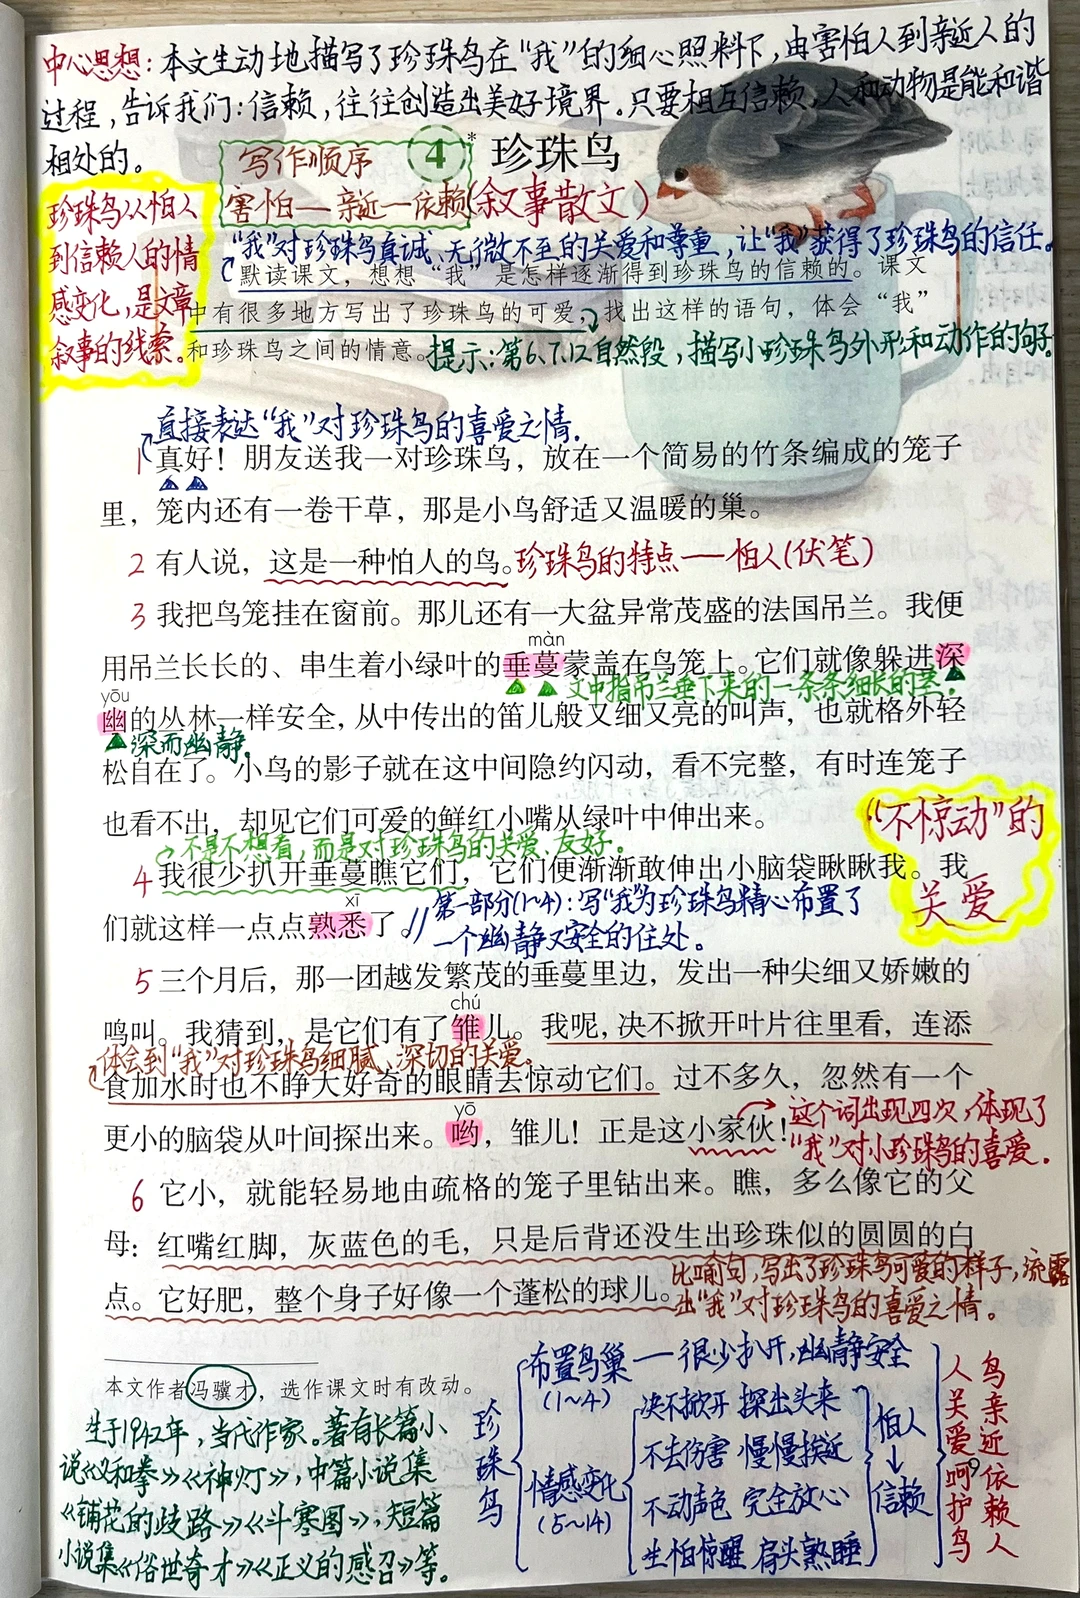 中心思想：本文生动地描写了珍珠鸟在“我”的细心照料下，由害怕人到亲近人的
过程，告诉我们：信赖，往往创造出美好境界。只要相互信赖，人和动物是能和谐
相处的。
写作顺序
害怕—亲近—依赖
4* 珍珠鸟
(叙事散文)
珍珠鸟从怕人
到信赖人的情
感变化，是文章
叙事的线索。
“我”对珍珠鸟真诚、无微不至的关爱和尊重，让“我”获得了珍珠鸟的信任。
默读课文，想想“我”是怎样逐渐得到珍珠鸟的信赖的。课文
中有很多地方写出了珍珠鸟的可爱，找出这样的语句，体会“我”
和珍珠鸟之间的情意。
提示：第6、7、12自然段，描写小珍珠鸟外形和动作的句子
直接表达“我”对珍珠鸟的喜爱之情.
1 真好！朋友送我一对珍珠鸟，放在一个简易的竹条编成的笼子
里，笼内还有一卷干草，那是小鸟舒适又温暖的巢。
2 有人说，这是一种怕人的鸟。珍珠鸟的特点——怕人(伏笔)
3 我把鸟笼挂在窗前。那儿还有一大盆异常茂盛的法国吊兰。我便
màn
用吊兰长长的、串生着小绿叶的垂蔓蒙盖在鸟笼上。它们就像躲进深
文中指吊兰垂下来的一条条细长的茎.
yōu
幽的丛林一样安全，从中传出的笛儿般又细又亮的叫声，也就格外轻
深而幽静。
松自在了。小鸟的影子就在这中间隐约闪动，看不完整，有时连笼子
也看不出，却见它们可爱的鲜红小嘴从绿叶中伸出来。
“不惊动”的
关爱
不是不想看，而是对珍珠鸟的关爱、友好。
4 我很少扒开垂蔓瞧它们，它们便渐渐敢伸出小脑袋瞅瞅我。我
xī
们就这样一点点熟悉了。//
第一部分(1~4)：写“我”为珍珠鸟精心布置了
一个幽静又安全的住处。
5 三个月后，那一团越发繁茂的垂蔓里边，发出一种尖细又娇嫩的
chú
鸣叫。我猜到，是它们有了雏儿。我呢，决不掀开叶片往里看，连添
体会到“我”对珍珠鸟细腻、深切的关爱。
食加水时也不睁大好奇的眼睛去惊动它们。过不多久，忽然有一个
yō
更小的脑袋从叶间探出来。哟，雏儿！正是这小家伙！
这个词出现四次，体现了
“我”对小珍珠鸟的喜爱.
6 它小，就能轻易地由疏格的笼子里钻出来。瞧，多么像它的父
母：红嘴红脚，灰蓝色的毛，只是后背还没生出珍珠似的圆圆的白
点。它好肥，整个身子好像一个蓬松的球儿。
比喻句，写出了珍珠鸟可爱的样子，流露
出“我”对珍珠鸟的喜爱之情。
本文作者冯骥才，选作课文时有改动。
生于1942年，当代作家。著有长篇小
说《义和拳》《神灯》，中篇小说集
《铺花的歧路》《斗寒图》，短篇
小说集《俗世奇才》《正义的感召》等。
珍珠鸟
布置鸟巢——很少扒开，幽静安全
(1~4)
情感变化
(5~14)
决不掀开 探出头来
不去伤害 慢慢挨近
不动声色 完全放心
生怕惊醒 肩头熟睡
怕人
↓
信赖
人关爱呵护鸟
鸟亲近依赖人
9